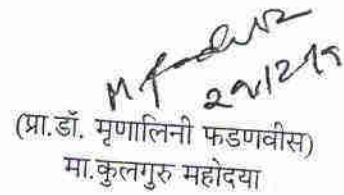 (प्रा.डॉ. मृणालिनी फडणवीस)
मा.कुलगुरु महोदया